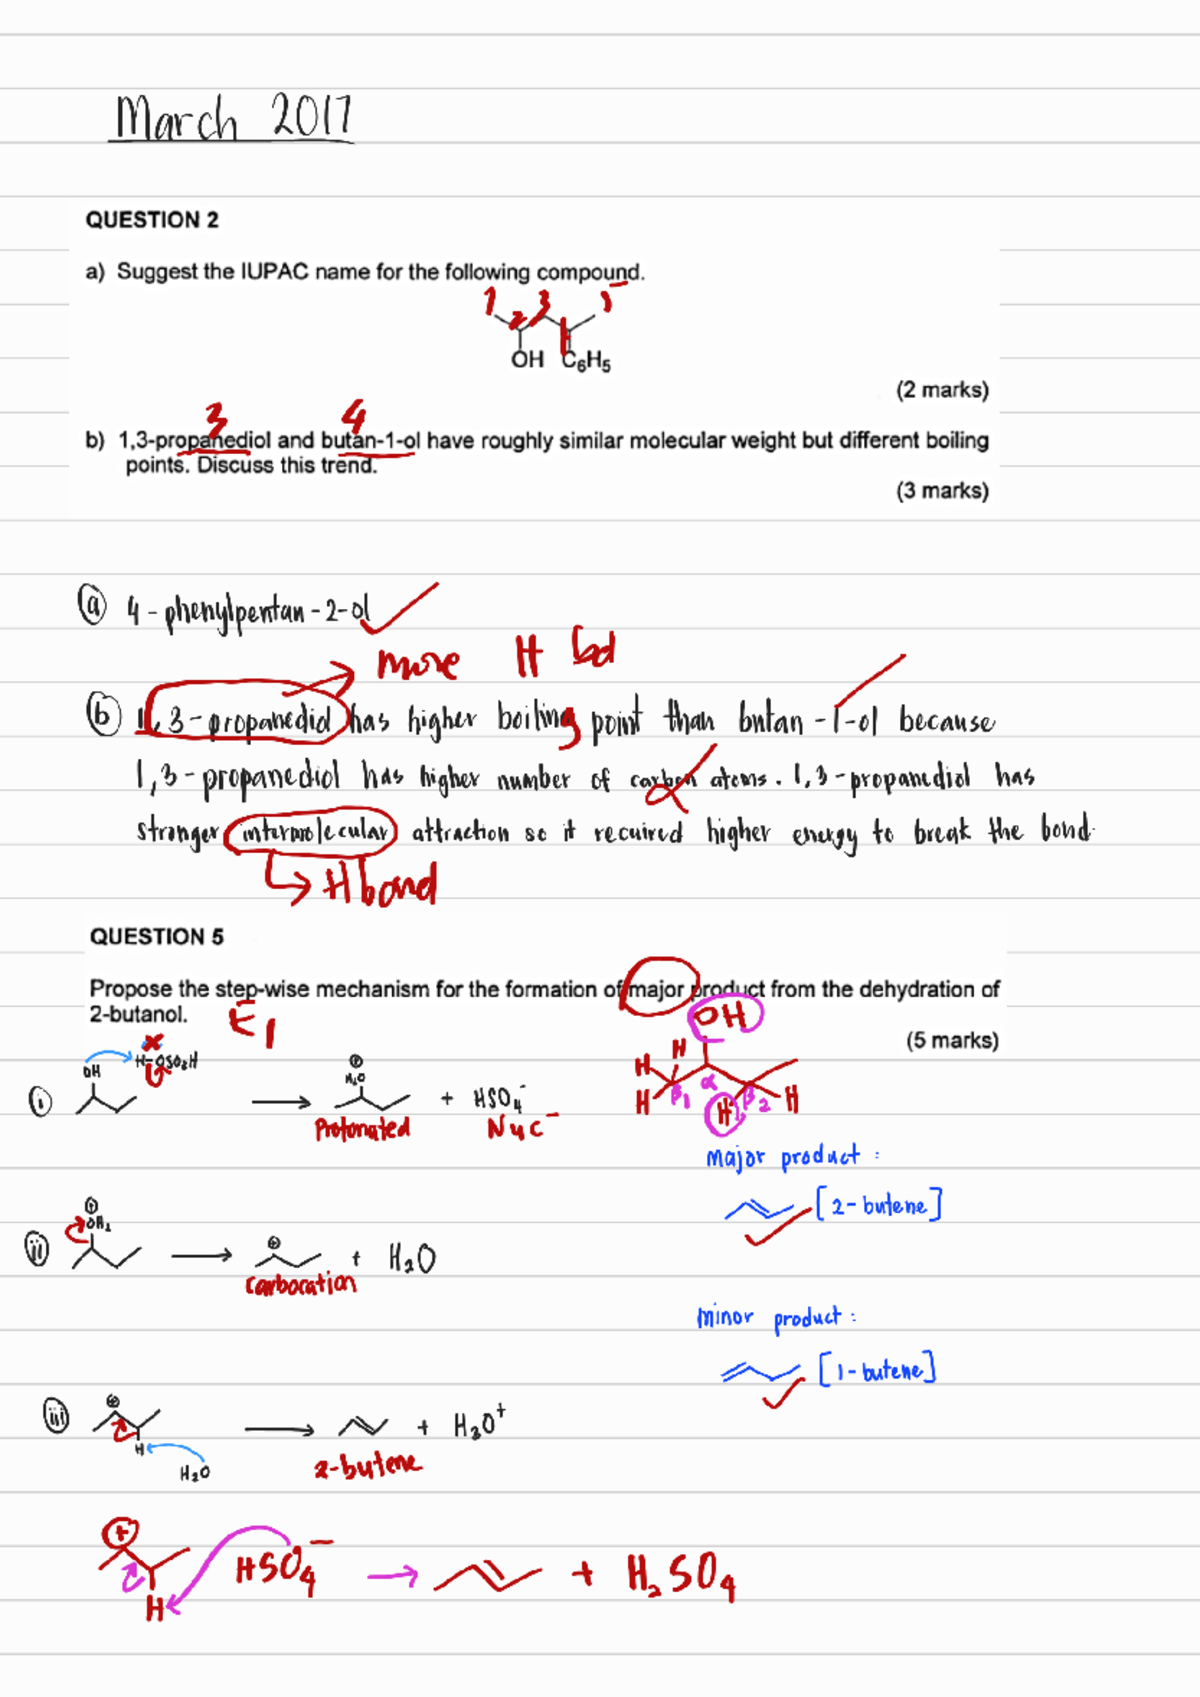 March 2017
QUESTION 2
a) Suggest the IUPAC name for the following compound.
1 2 3 5
OH C6H5
(2 marks)
3 4
b) 1,3-propanediol and butan-1-ol have roughly similar molecular weight but different boiling
points. Discuss this trend.
(3 marks)
a 4-phenylpentan-2-ol
more H bd
b 1,3-propanediol has higher boiling point than butan-1-ol because
1,3-propanediol has higher number of carbon atoms. 1,3-propanediol has
stronger intermolecular attraction so it recuired higher energy to break the bond.
H bond
QUESTION 5
Propose the step-wise mechanism for the formation of major product from the dehydration of
2-butanol.
E1
OH
(5 marks)
H H H β1 α H β2 H
i OH H-OSO3H → ⊕ H2O + HSO4-
Protonated Nuc-
major product :
[2-butene]
ii ⊕ OH2 → ⊕ + H2O
Carbocation
minor product :
[1-butene]
iii ⊕ H H2O → + H3O+
2-butene
+ H HSO4- → + H2SO4